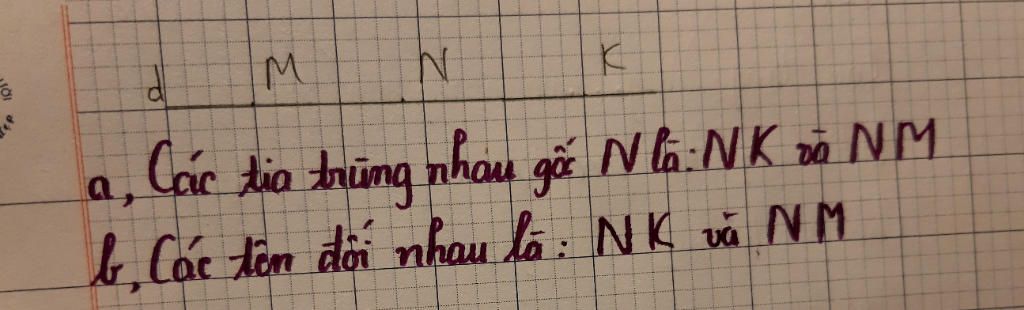 d M N K
a, Các tia trùng nhau gốc N là: NK và NM
b, Các tên đối nhau là: NK và NM